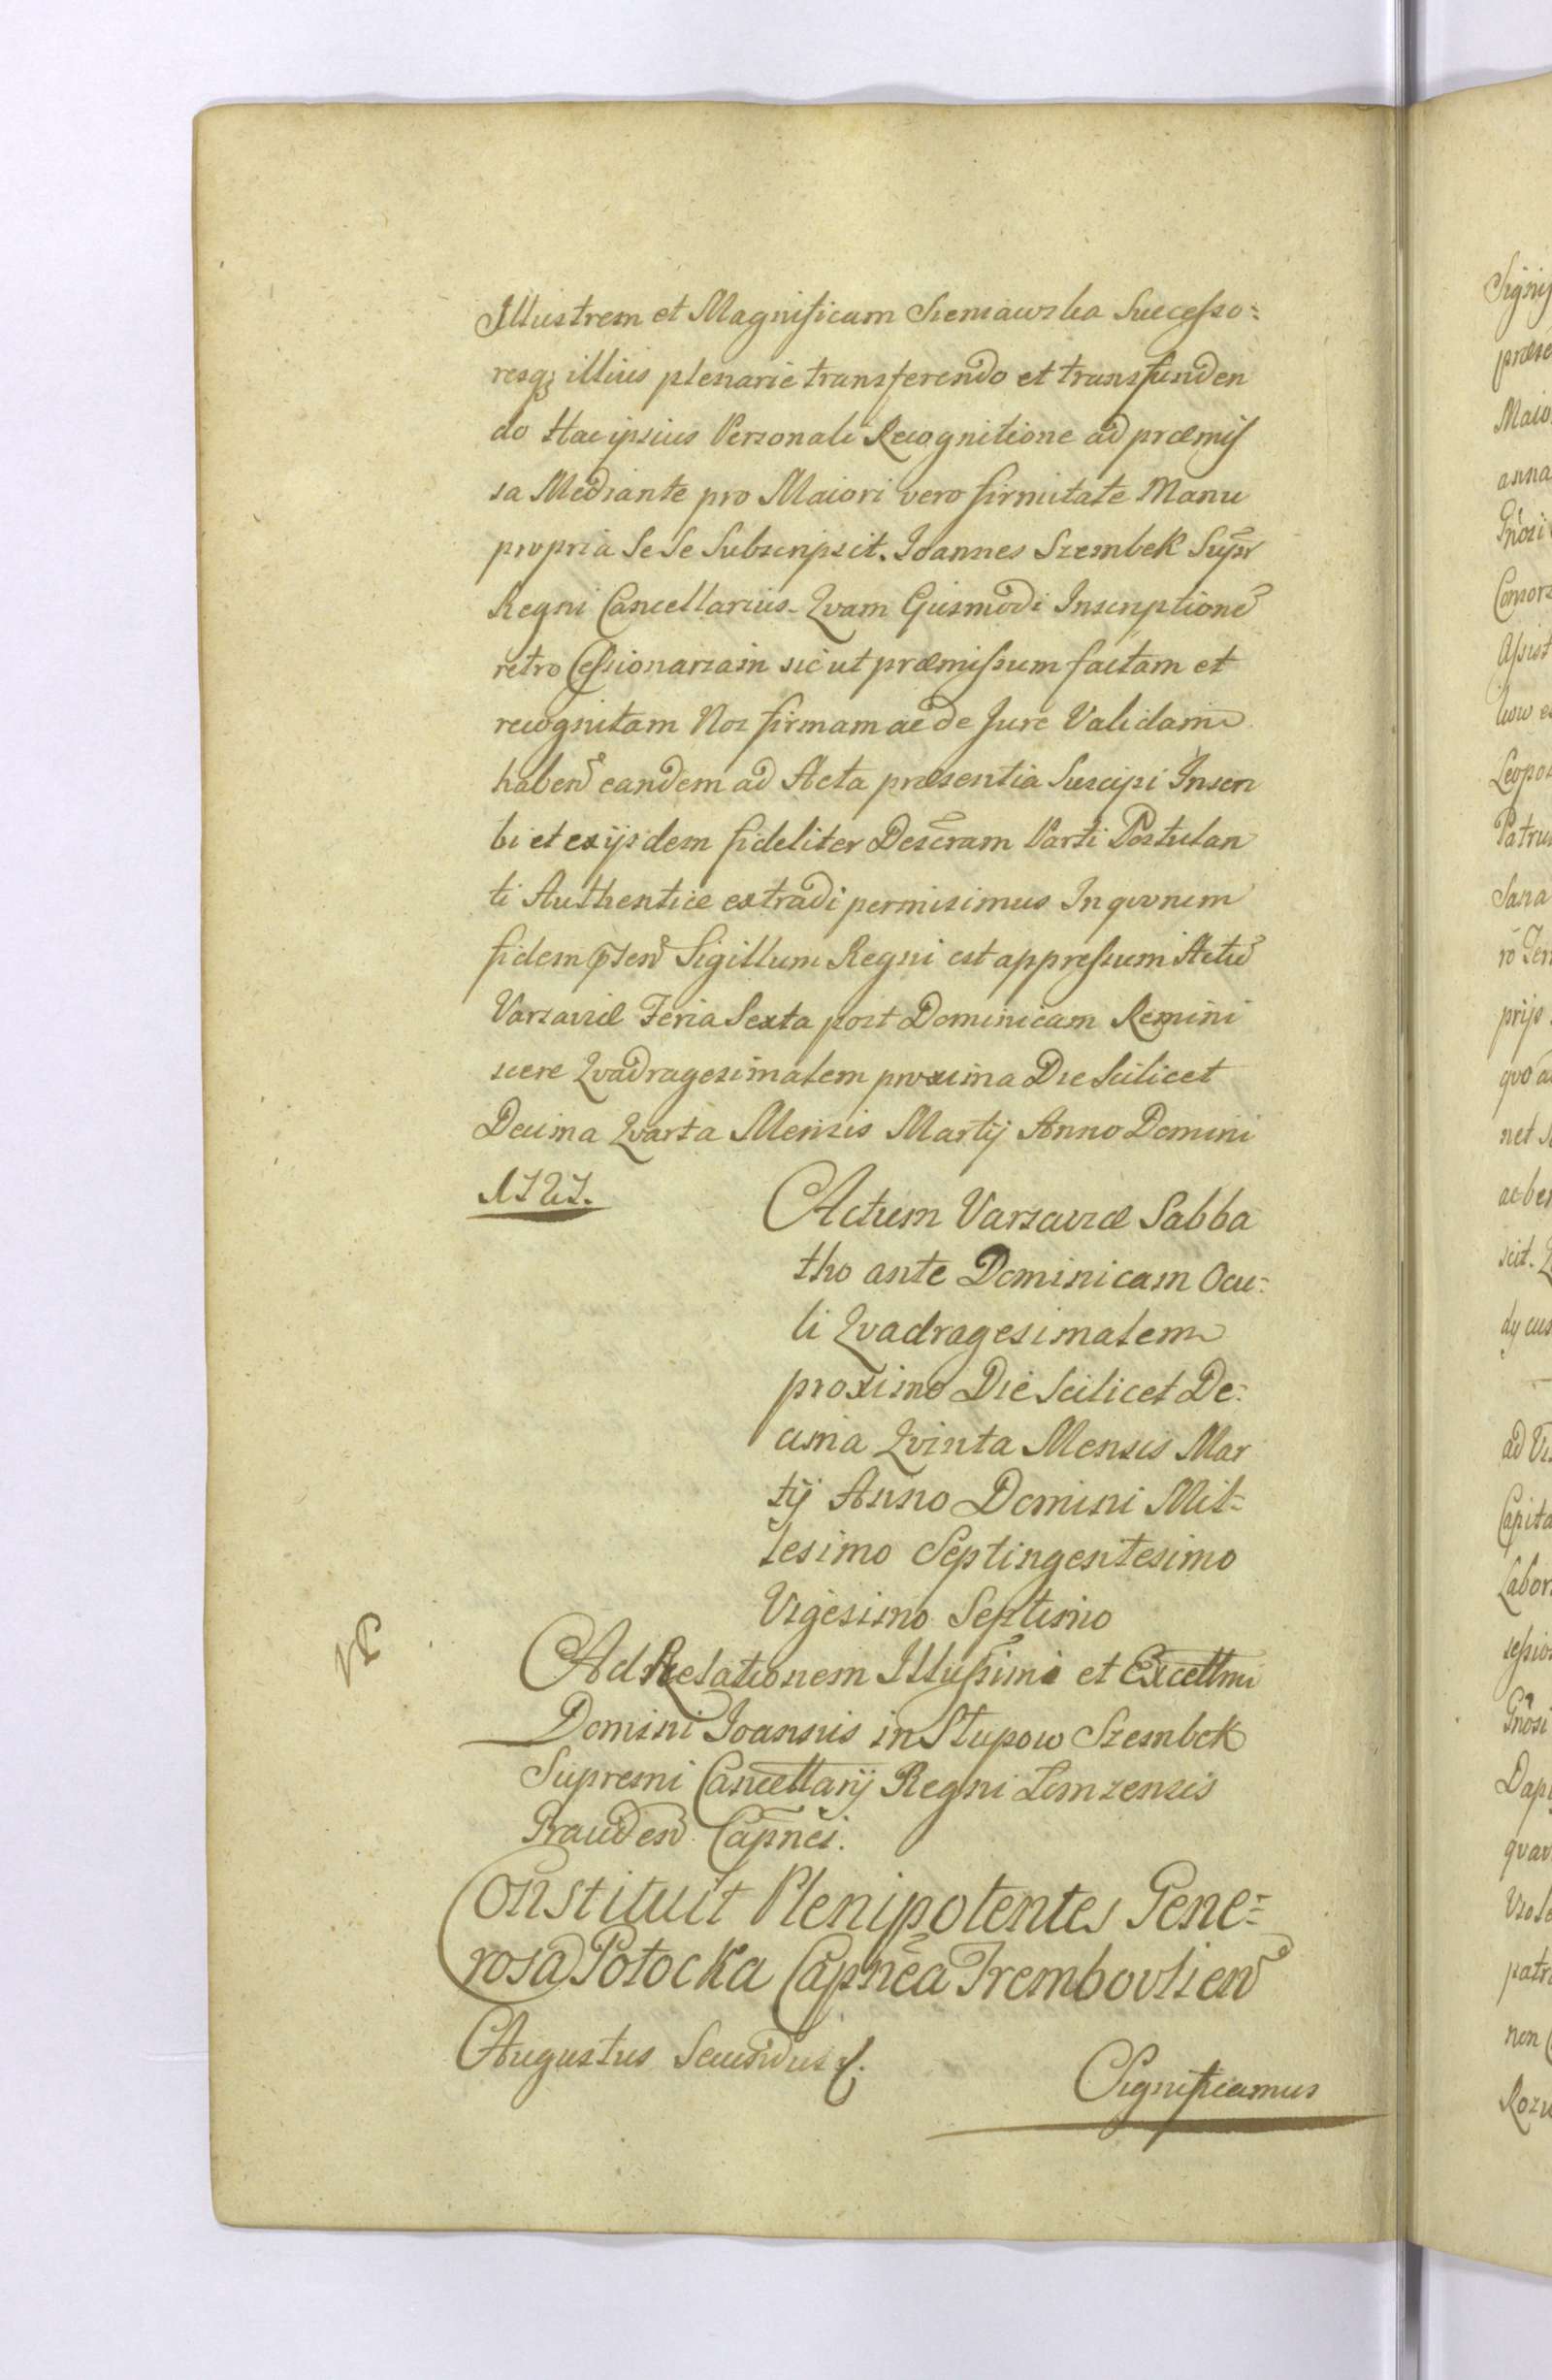 Illustrem et Magnificam Sieniawska Successo=
resq; illius plenarie transferendo et transfunden
do Hac ipsius Personali Recognitione ad præmis
sa Mediante pro Maiori vero firmitate Manu
propria Se Se Subscripsit. Joannes Szembek Supr
Regni Cancellarius. Qvam Eiusmodi Inscriptione
retro Cessionariam sicut præmissum factam et
recognitam Nos firmam ac de Jure Validam
haben eandem ad Acta præsentia Suscipi Inscri
bi et ex ijsdem fideliter Descram Parti Postulan
ti Authentice extradi permisimus In qvorum
fidem Sigillum Regni est appressum Actu
Varsaviæ Feria Sexta post Dominicam Remini
scere Qvadragesimalem proxima Die Scilicet
Decima Qvarta Mensis Martij Anno Domini
1727.
Actum Varsaviæ Sabba
tho ante Dominicam Ocu=
li Qvadragesimalem
proximo Die Scilicet De=
cima Qvinta Mensis Mar
tij Anno Domini Mil=
lesimo Septingentesimo
Vigesimo Septimo
Ad Relationem Illussimi et Excellmi
Domini Joannis in Slupow Szembek
Supremi Cancellarij Regni Lomzensis
Grauden Capnei.
Constituit Plenipotentes Gene=
rosa Potocka Capnea Trembovlien
Augustus Secundus
Significamus